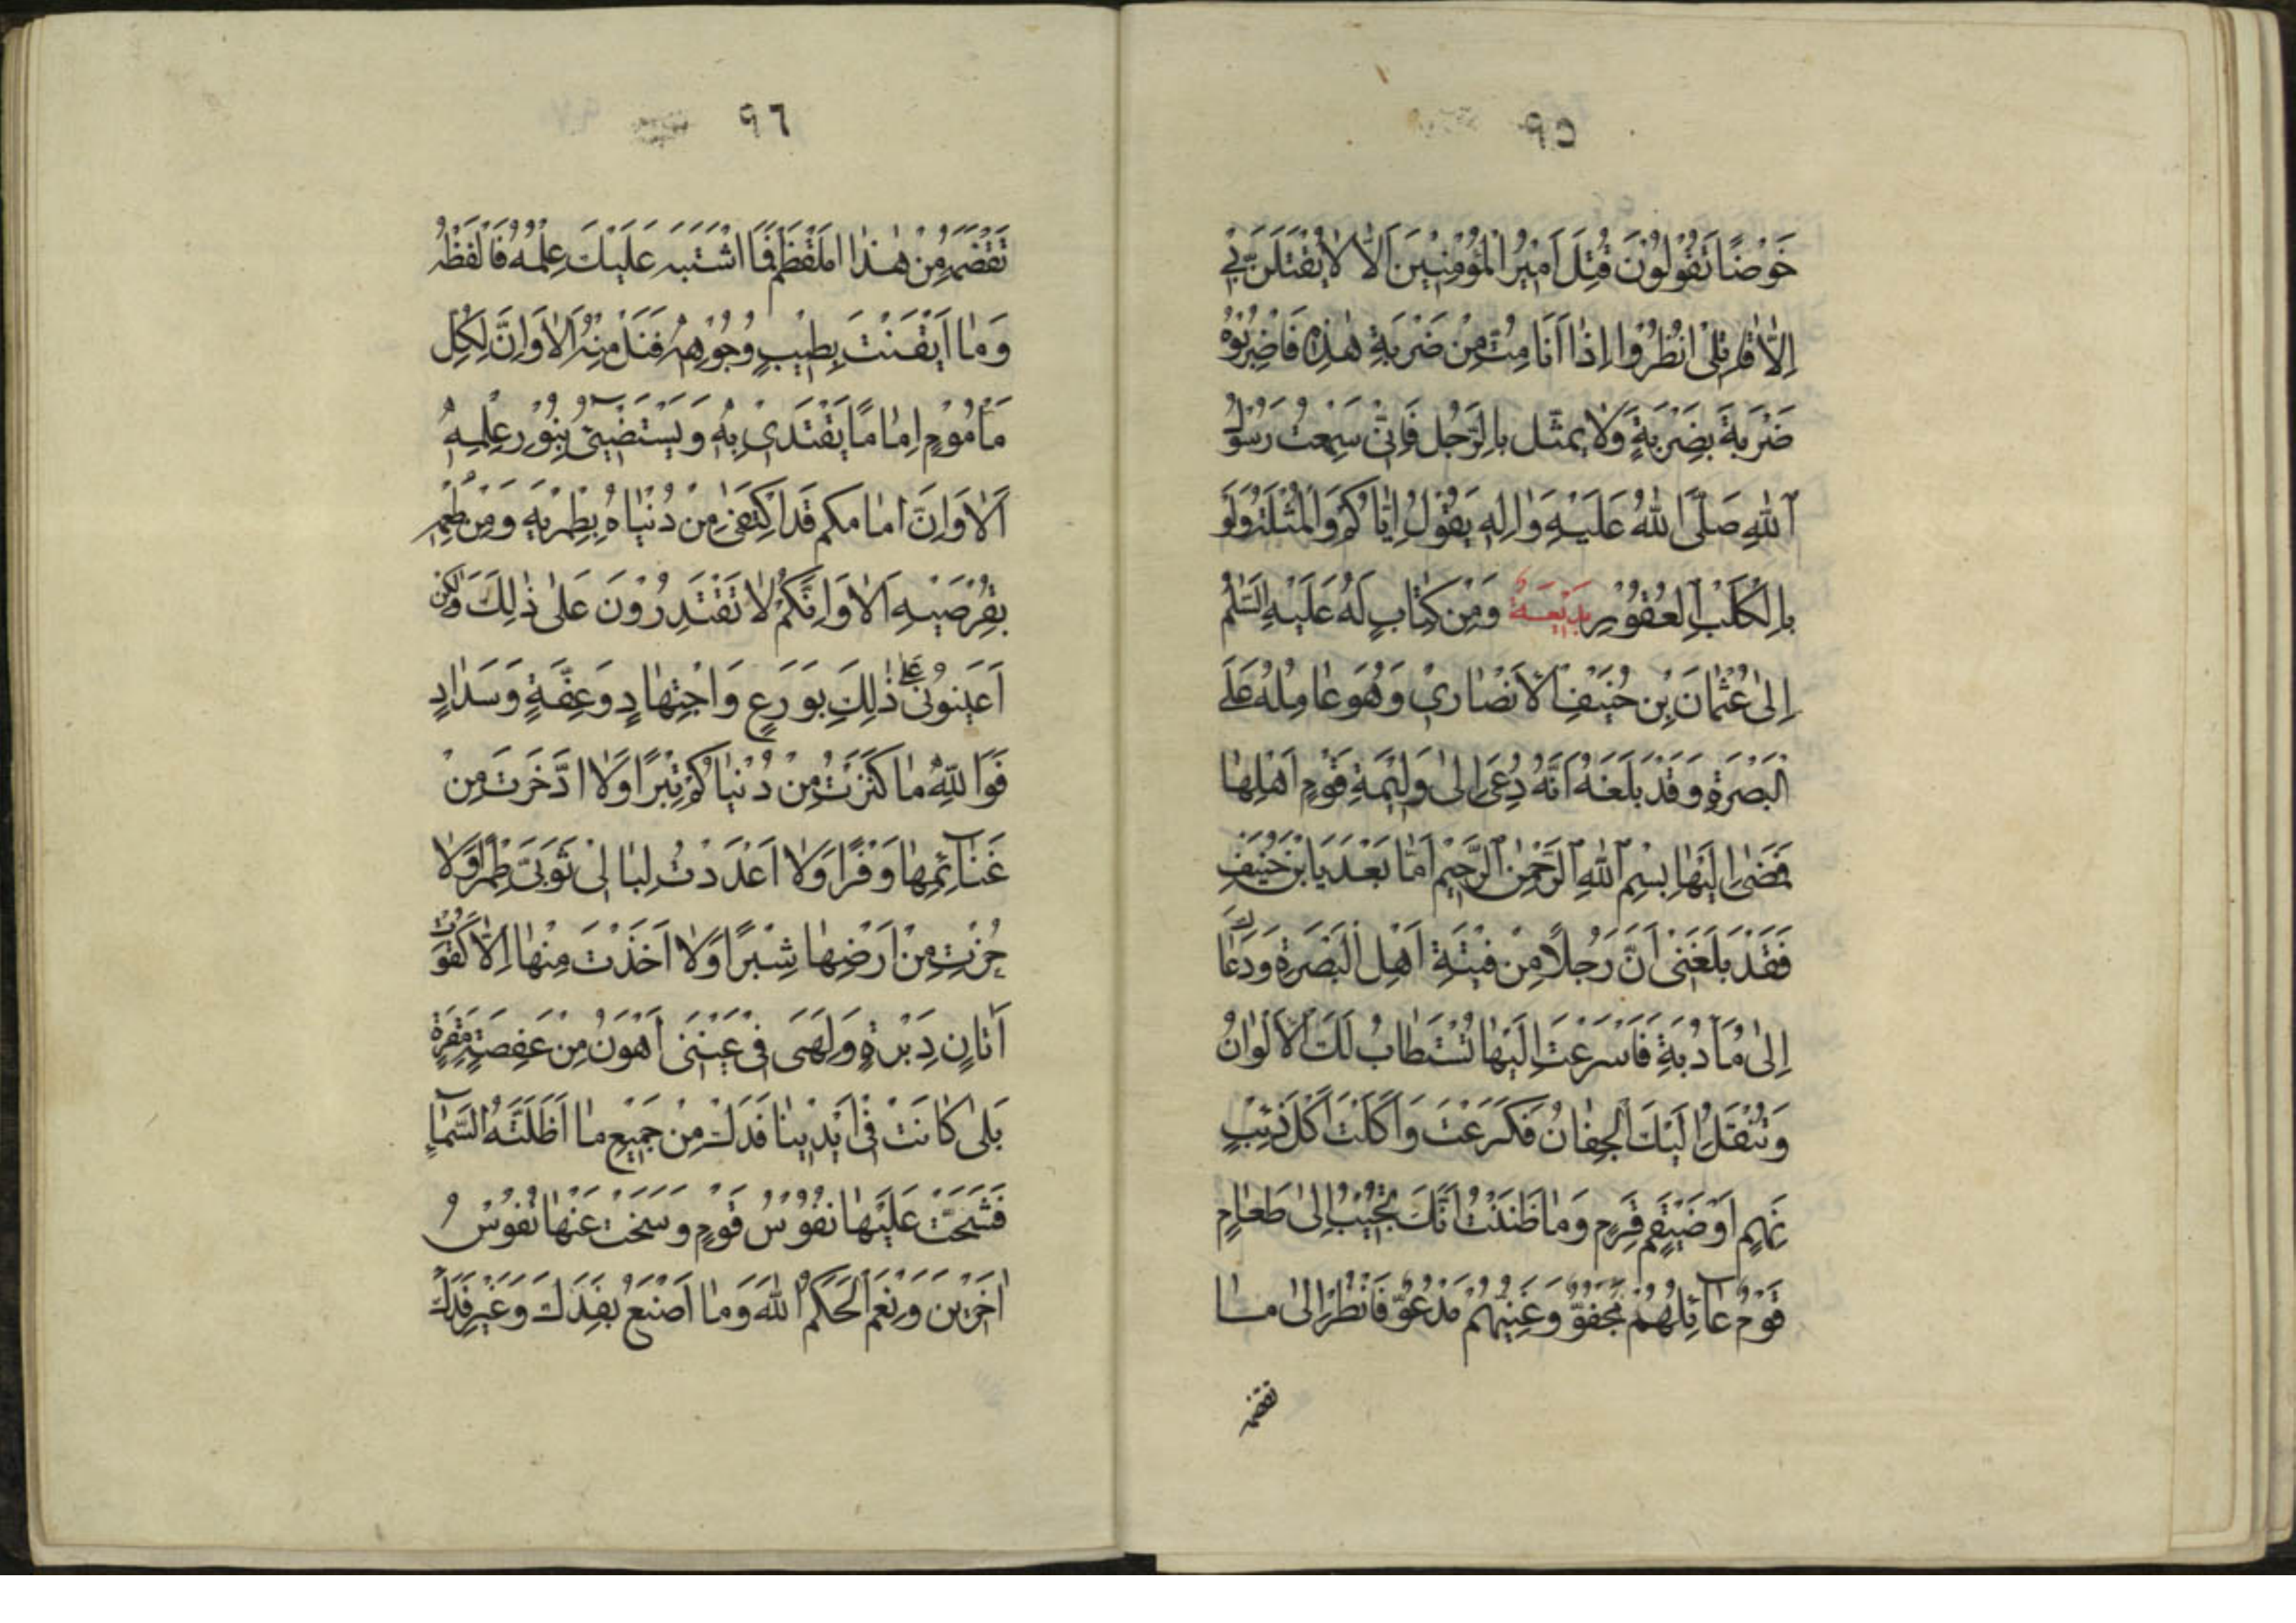 ٩٥
خَوْضًا تَقُوْلُوْنَ قُتِلَ اَمِيْرُ الْمُؤْمِنِيْنَ اَلَا لَا يُقْتَلَنَّ بِيْ
اِلَّا قَاتِلِىْ اُنْظُرُوا اِذَا اَنَا مِتُّ مِنْ ضَرْبَةِ هٰذِهٖ فَاضْرِبُوْهُ
ضَرْبَةً بِضَرْبَةٍ وَلَا يُمَثَّل بِالرَّجُلِ فَاِنِّىْ سَمِعْتُ رَسُوْلَ
اللّٰهِ صَلَّى اللّٰهُ عَلَيْهِ وَاٰلِهٖ يَقُوْلُ اِيَّاكُمْ وَالْمُثْلَةَ وَلَوْ
بِالْكَلْبِ الْعَقُوْرِ وَمِنْ كِتَابٍ لَهٗ عَلَيْهِ السَّلٰمُ
اِلٰى عُثْمَانَ بْنِ حُنَيْفٍ الْاَنْصَارِيْ وَهُوَ عَامِلُهٗ عَلَى
الْبَصْرَةِ وَقَدْ بَلَغَهٗ اَنَّهٗ دُعِىَ اِلٰى وَلِيْمَةِ قَوْمِ اَهْلِهَا
فَمَضٰى اِلَيْهَا بِسْمِ اللّٰهِ الرَّحْمٰنِ الرَّحِيْمِ اَمَّا بَعْدُ يَا بْنَ حُنَيْفٍ
فَقَدْ بَلَغَنِىْ اَنَّ رَجُلًا مِنْ فِتْيَةِ اَهْلِ الْبَصْرَةِ دَعَاكَ
اِلٰى مَأْدُبَةٍ فَاَسْرَعْتَ اِلَيْهَا تُسْتَطَابُ لَكَ الْاَلْوَانُ
وَتُنْقَلُ اِلَيْكَ الْجِفَانُ فَكَرَعْتَ وَاَكَلْتَ اَكْلَ ذِئْبٍ
نَهِمٍ اَوْ ضَيْغَمٍ قَرِمٍ وَمَا ظَنَنْتُ اَنَّكَ تُجِيْبُ اِلٰى طَعَامِ
قَوْمٍ عَآئِلُهُمْ مَجْفُوٌّ وَغَنِيُّهُمْ مَدْعُوٌّ فَانْظُرْ اِلٰى مَا
تقضمه
٩٦
تَقْضَمُهٗ مِنْ هٰذَا الْمَقْضَمِ فَمَا اشْتَبَهَ عَلَيْكَ عِلْمُهٗ فَالْفِظْهُ
وَمَا اَيْقَنْتَ بِطِيْبِ وُجُوْهِهٖ فَنَلْ مِنْهُ اَلَا وَاِنَّ لِكُلِّ
مَأْمُوْمٍ اِمَامًا يَقْتَدِىْ بِهٖ وَيَسْتَضِيْٓئُ بِنُوْرِ عِلْمِهٖ
اَلَا وَاِنَّ اِمَامَكُمْ قَدِ اكْتَفٰى مِنْ دُنْيَاهُ بِطِمْرَيْهِ وَمِنْ طُعْمِهٖ
بِقُرْصَيْهِ اَلَا وَاِنَّكُمْ لَا تَقْتَدِرُوْنَ عَلٰى ذٰلِكَ وَلٰكِنْ
اَعِيْنُوْنِىْ عَلٰى ذٰلِكَ بِوَرَعٍ وَاجْتِهَادٍ وَعِفَّةٍ وَسَدَادٍ
فَوَ اللّٰهِ مَا كَنَزْتُ مِنْ دُنْيَاكُمْ تِبْرًا وَلَا ادَّخَرْتُ مِنْ
غَنَآئِمِهَا وَفْرًا وَلَا اَعْدَدْتُ لِبَالِىْ ثَوْبِىْ طِمْرًا وَلَا
حُزْتُ مِنْ اَرْضِهَا شِبْرًا وَلَا اَخَذْتُ مِنْهَا اِلَّا كَقُوْتِ
اَتَانٍ دَبِرَةٍ وَلَهِىَ فِىْ عَيْنِىْ اَهْوَنُ مِنْ عَفْصَةٍ مَقِرَةٍ
بَلٰى كَانَتْ فِىْ اَيْدِيْنَا فَدَكُ مِنْ جَمِيْعِ مَا اَظَلَّتْهُ السَّمَآءُ
فَشَحَّتْ عَلَيْهَا نُفُوْسُ قَوْمٍ وَسَخَتْ عَنْهَا نُفُوْسُ
اٰخَرِيْنَ وَنِعْمَ الْحَكَمُ اللّٰهُ وَمَا اَصْنَعُ بِفَدَكَ وَغَيْرِ فَدَكَ